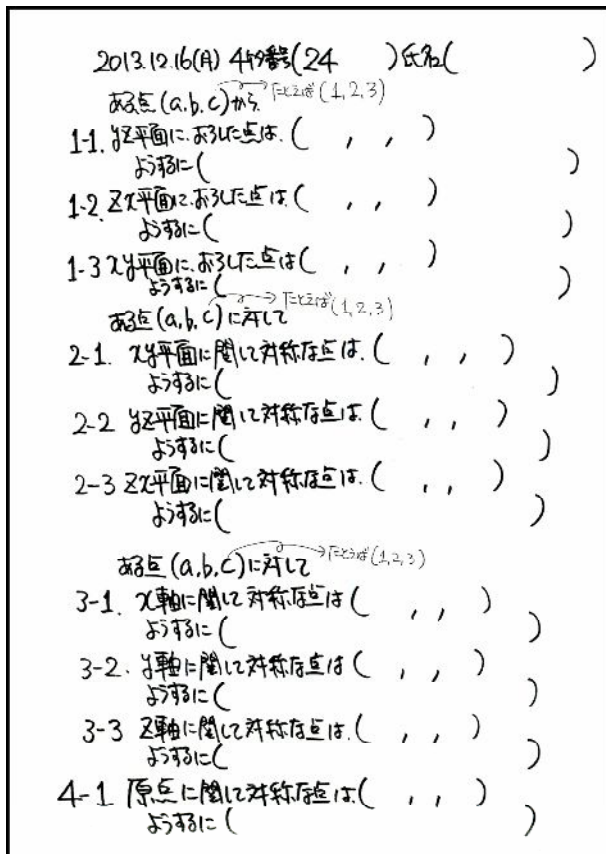 2013.12.16(月) 4ケタ番号(24 )氏名( )
ある点(a,b,c)から → たとえば(1,2,3)
1-1. yz平面に、おろした点は、( , , )
ようするに( )
1-2. zx平面に、おろした点は( , , )
ようするに( )
1-3 xy平面に、おろした点は( , , )
ようするに( )
ある点(a,b,c)に対して → たとえば(1,2,3)
2-1. xy平面に関して対称な点は、( , , )
ようするに( )
2-2 yz平面に関して対称な点は、( , , )
ようするに( )
2-3 zx平面に関して対称な点は、( , , )
ようするに( )
ある点(a,b,c)に対して → たとえば(1,2,3)
3-1. x軸に関して対称な点は( , , )
ようするに( )
3-2. y軸に関して対称な点は( , , )
ようするに( )
3-3 z軸に関して対称な点は、( , , )
ようするに( )
4-1 原点に関して対称な点は、( , , )
ようするに( )